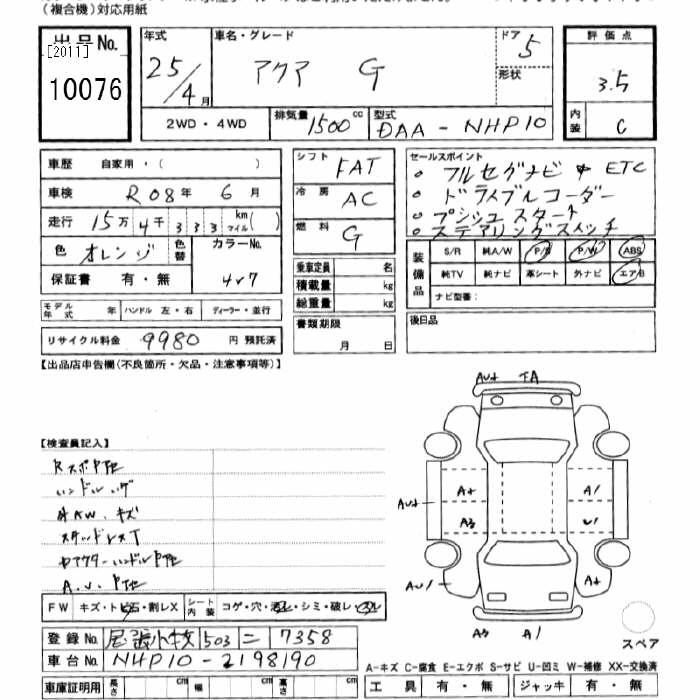 （複合機）対応用紙
出品No.
[2011]
10076
年式 25/4月
車名・グレード アクア G
ドア 5
形状
評価点 3.5
内装 C
2WD・4WD
排気量 1500cc
型式 DAA-NHP10
車歴 自家用・（ ）
車検 R08年6月
走行 15万4千333km マイル( )
色 オレンジ 色替 カラーNo. 4V7
保証書 有・無
モデル年式 年 ハンドル 左・右 ディーラー・並行
リサイクル料金 9980円 預託済
シフト FAT
冷房 AC
燃料 G
乗車定員 名
積載量 kg
総重量 kg
書類期限
月 日
セールスポイント
○ フルセグナビ ETC
○ ドライブレコーダー
○ プッシュスタート
○ ステアリングスイッチ
装備品 S/R 純A/W P/S P/W ABS
純TV 純ナビ 革シート 外ナビ エアB
ナビ型番：
後日品
【出品店申告欄(不良箇所・欠品・注意事項等)】
【検査員記入】
ハンドル
キズ
FW キズ・トビ石・割レX シート内装 コゲ・穴・シミ・破レ
登録No. 尾張小牧 503 ニ 7358
車台No. NHP10-2198190
車庫証明用 長さ cm 幅 cm 高さ cm
TA
A1
A2
A1
スペア
A-キズ C-腐食 E-エクボ S-サビ U-凹ミ W-補修 XX-交換済
工具 有・無 ジャッキ 有・無